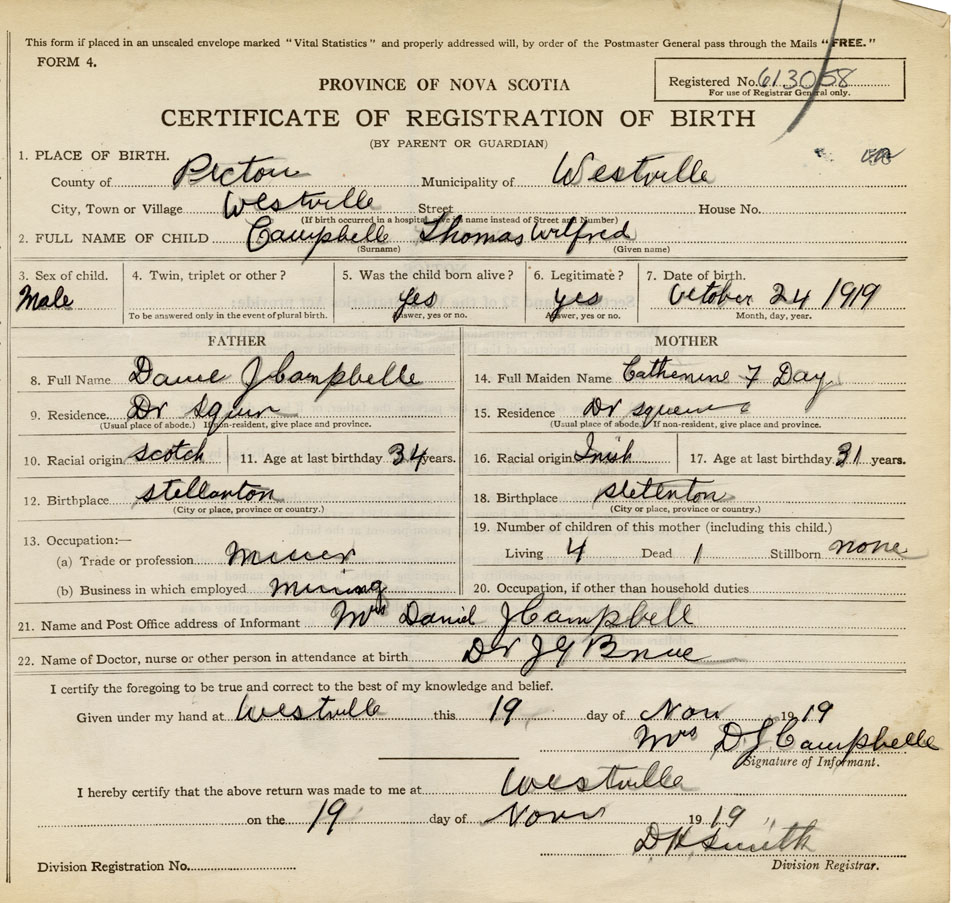 This form if placed in an unsealed envelope marked "Vital Statistics" and properly addressed will, by order of the Postmaster General pass through the Mails "FREE."
FORM 4.
Registered No. 613058
For use of Registrar General only.
PROVINCE OF NOVA SCOTIA
CERTIFICATE OF REGISTRATION OF BIRTH
(BY PARENT OR GUARDIAN)
1. PLACE OF BIRTH.
County of Picton Municipality of Westville
City, Town or Village Westville Street House No.
(If birth occurred in a hospital give its name instead of Street and Number)
2. FULL NAME OF CHILD Campbelle Thomas Wilfred
(Surname) (Given name)
3. Sex of child. 4. Twin, triplet or other? 5. Was the child born alive? 6. Legitimate? 7. Date of birth.
Male yes yes October 24 1919
To be answered only in the event of plural birth. Answer, yes or no. Answer, yes or no. Month, day, year.
FATHER MOTHER
8. Full Name J Campbelle 14. Full Maiden Name F Day
9. Residence Dr 15. Residence Dr
(Usual place of abode.) If non-resident, give place and province. (Usual place of abode.) If non-resident, give place and province.
10. Racial origin scotch 11. Age at last birthday 34 years. 16. Racial origin Irish 17. Age at last birthday 31 years.
12. Birthplace stellarton 18. Birthplace
(City or place, province or country.) (City or place, province or country.)
13. Occupation:— 19. Number of children of this mother (including this child.)
(a) Trade or profession Miner Living 4 Dead 1 Stillborn none
(b) Business in which employed Mining 20. Occupation, if other than household duties
21. Name and Post Office address of Informant Mrs Daniel J Campbell
22. Name of Doctor, nurse or other person in attendance at birth Dr J G
I certify the foregoing to be true and correct to the best of my knowledge and belief.
Given under my hand at Westville this 19 day of Nov 19 19
Mrs D J Campbelle
Signature of Informant.
I hereby certify that the above return was made to me at Westville
on the 19 day of Nov 19 19
D H Smith
Division Registration No. Division Registrar.